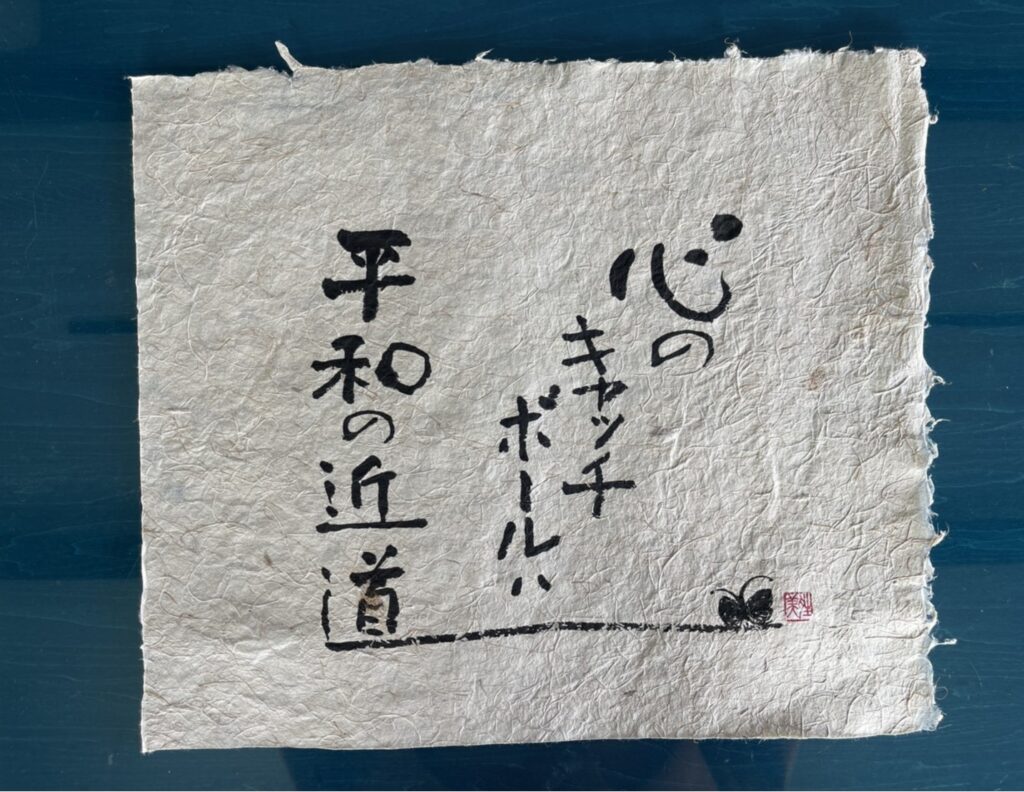 心の
キャッチ
ボールハ
平和の近道